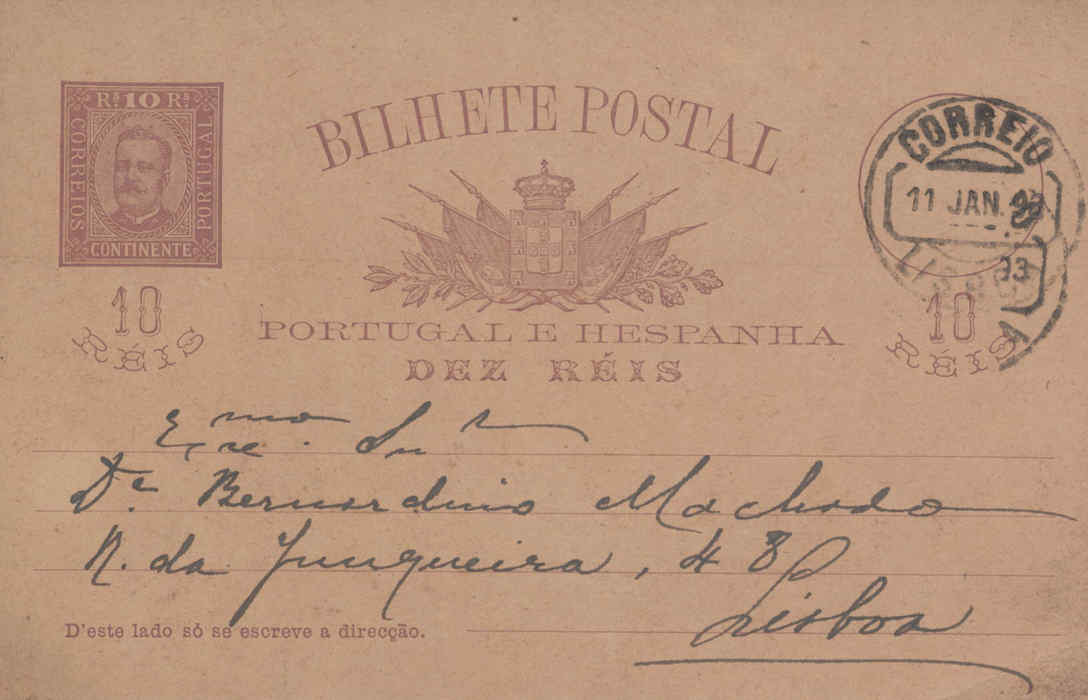 Rˢ 10 Rˢ
CORREIOS
PORTUGAL
CONTINENTE
BILHETE POSTAL
CORREIO
11 JAN. 93
LISBOA
10
RÉIS
PORTUGAL E HESPANHA
DEZ RÉIS
10
RÉIS
Exmo. Snr
Dr. Bernardino Machado
R. da Junqueira, 48
Lisboa
D'este lado só se escreve a direcção.